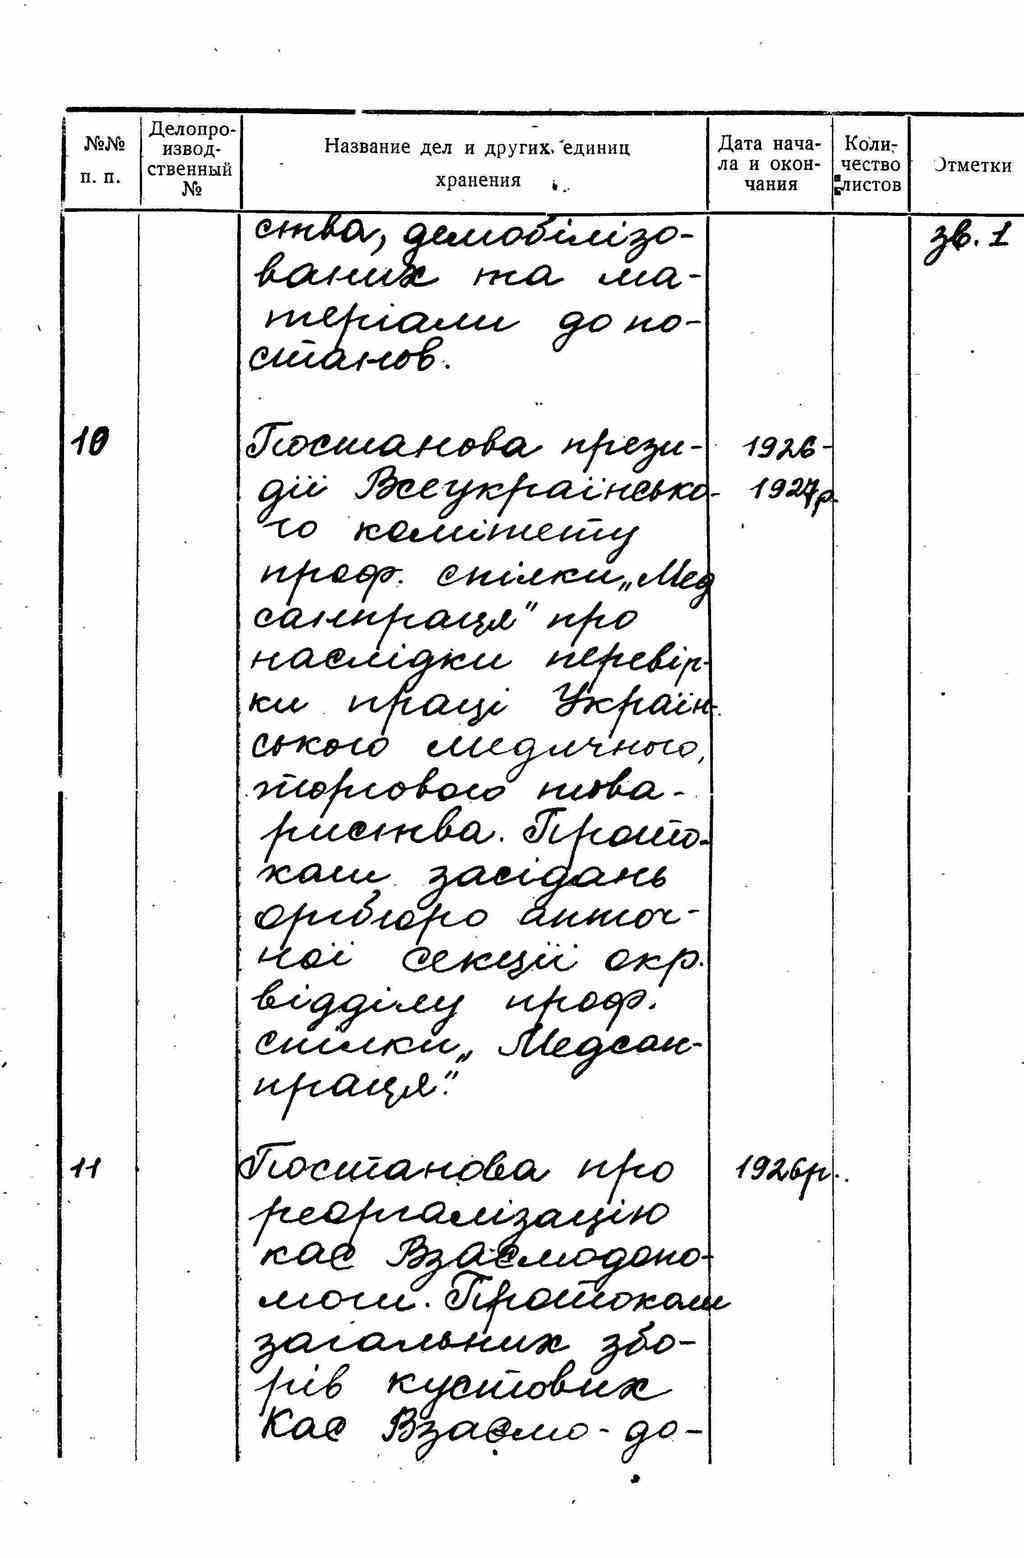 №№ п. п.
Делопро-
извод-
ственный
№
Название дел и других единиц
хранения
Дата нача-
ла и окон-
чания
Коли-
чество
листов
Отметки
ства, демобілізо-
ваних та ма-
теріали до по-
станов.
зв. 1
10
Постанова прези-
дії Всеукраїнсько-
го комітету
проф. спілки „Мед
санпраця" про
наслідки перевір-
ки праці Україн-
ського медичного,
торгового това-
риства. Прото-
коли засідань
оргбюро аптеч-
ної секції окр.
відділу проф.
спілки „Медсан-
праця".
1926-
1927р.
11
Постанова про
реорганізацію
кас Взаємодопо-
моги. Протоколи
загальних збо-
рів кустових
Кас Взаємо-до-
1926р.